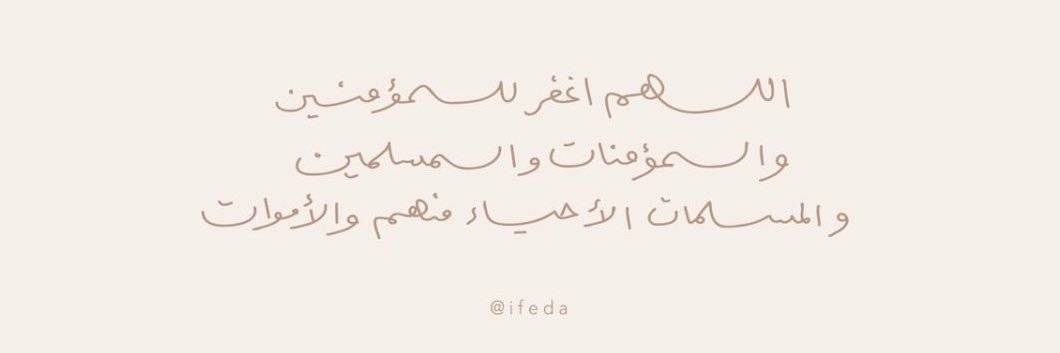 اللهم اغفر للمؤمنين
والمؤمنات والمسلمين
والمسلمات الأحياء منهم والأموات
@ifeda